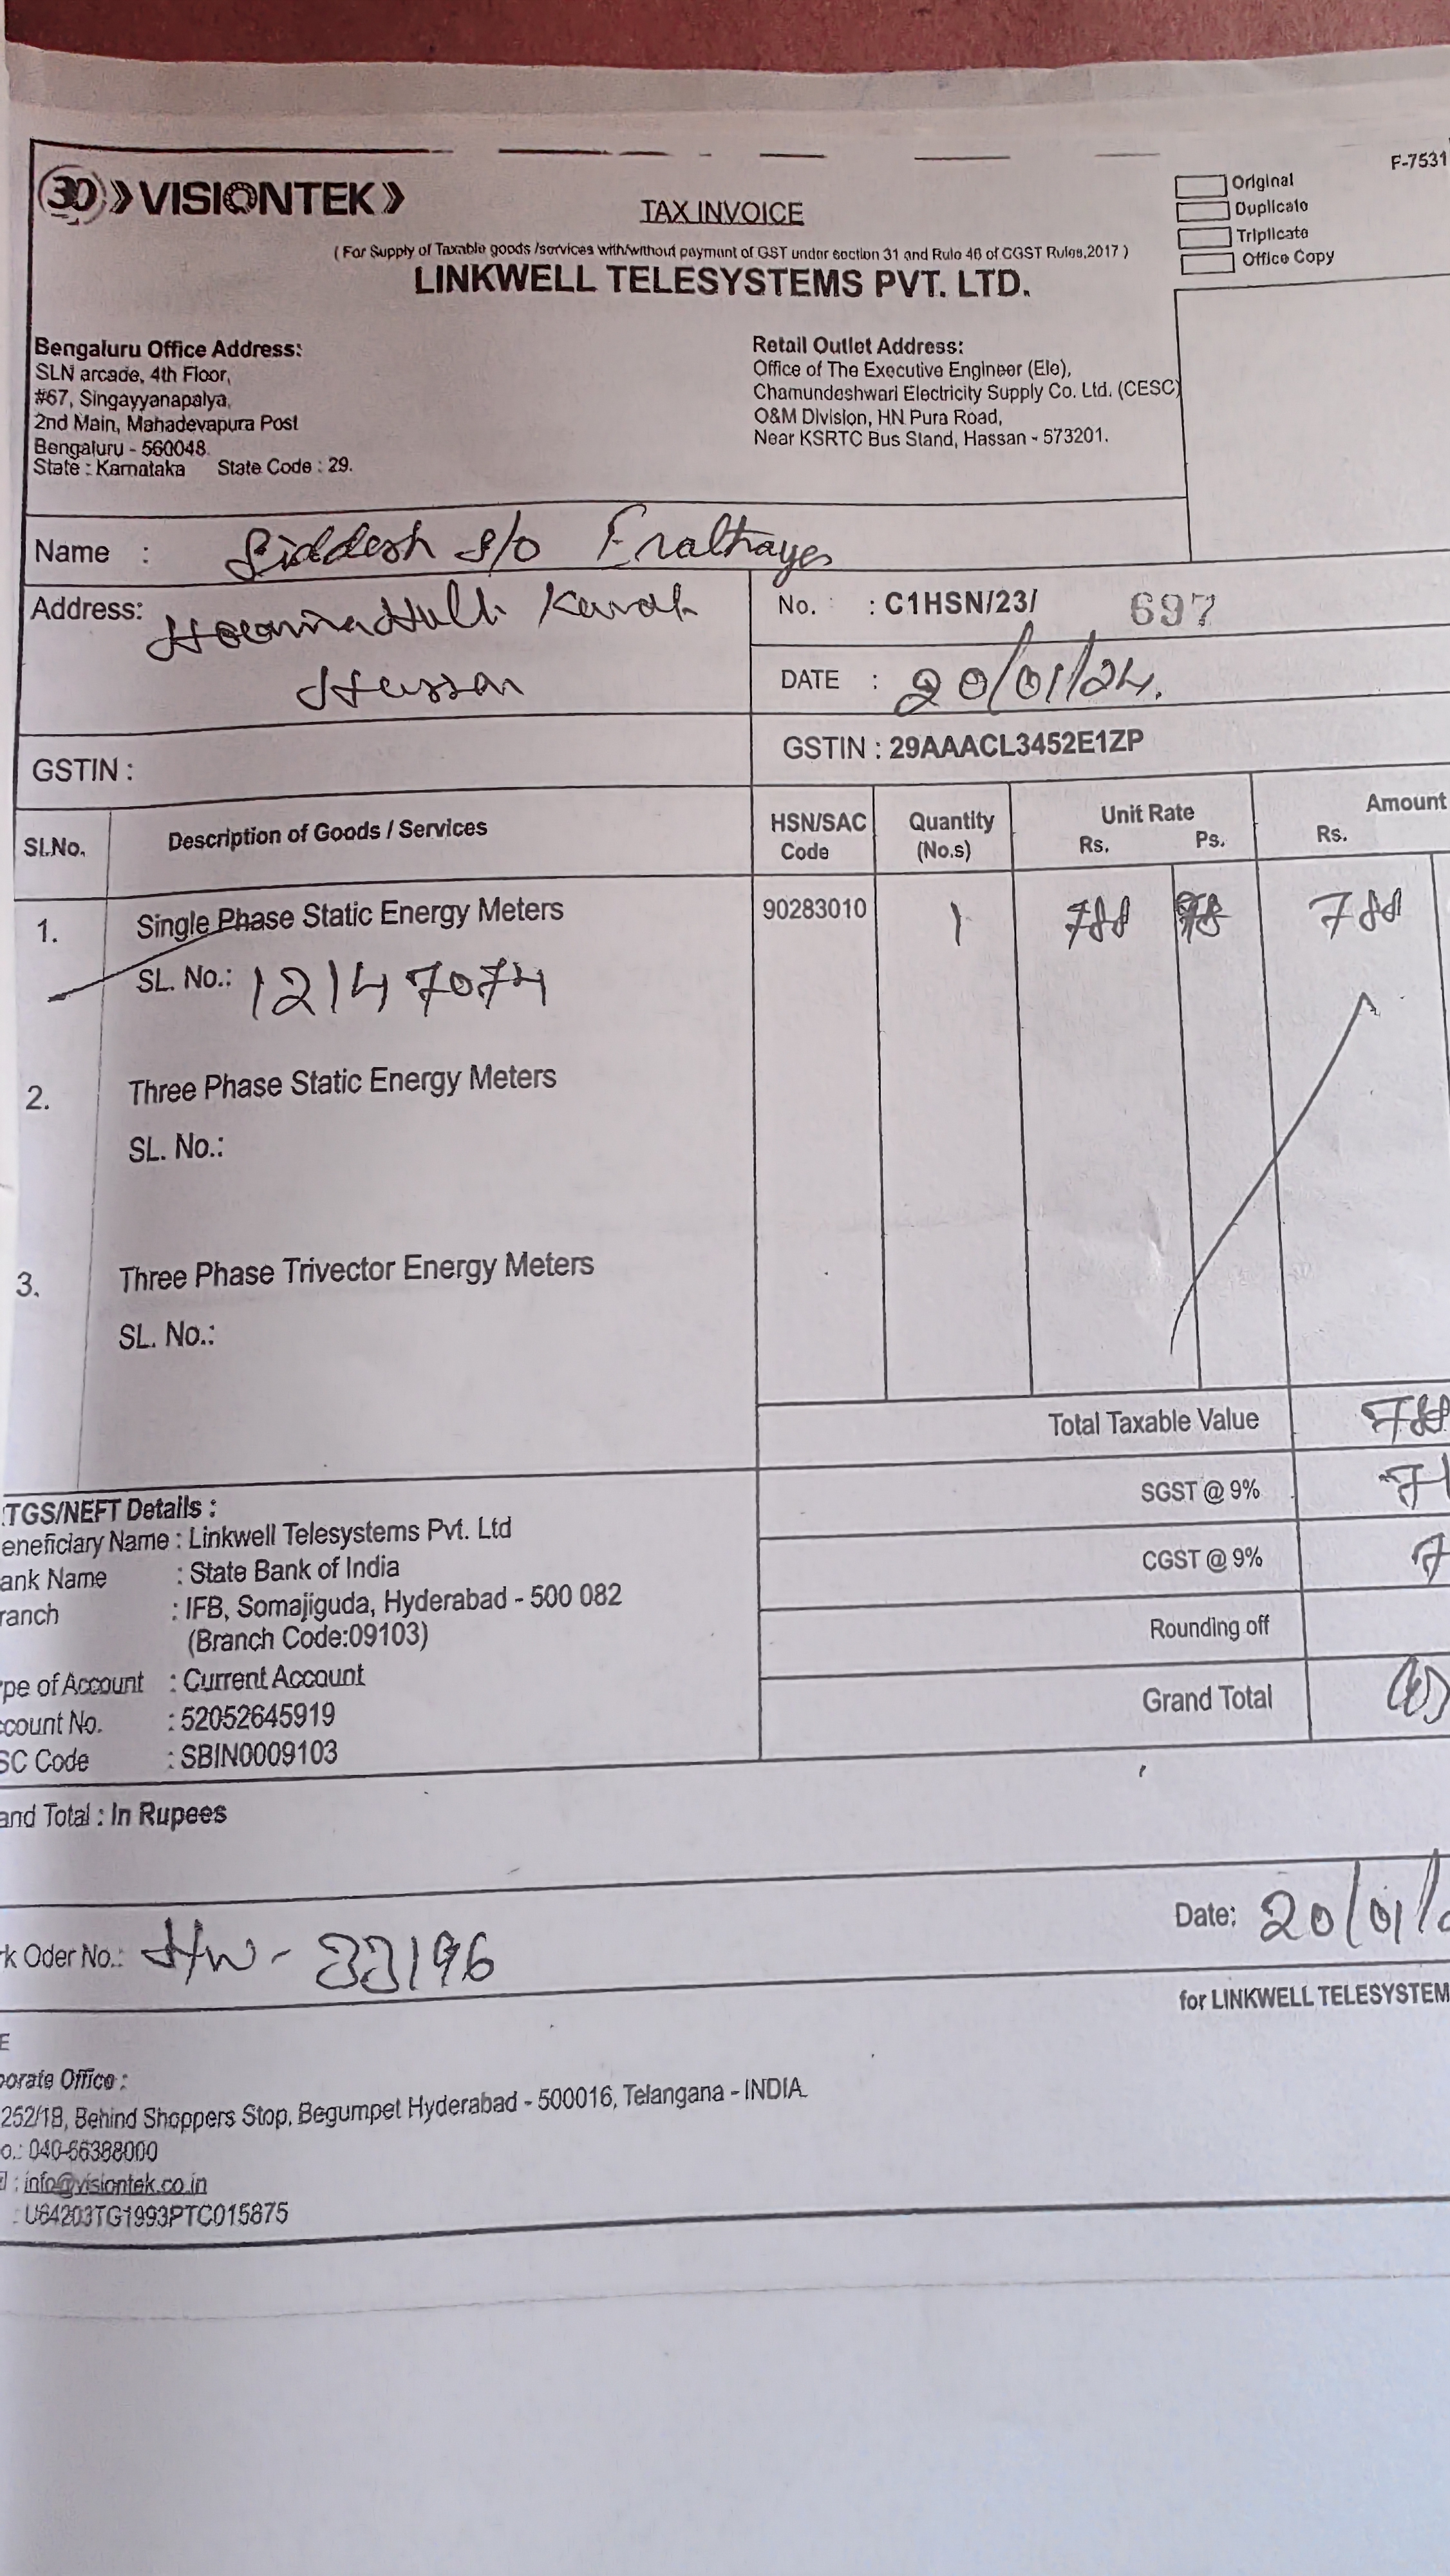 F-7531
Original
Duplicate
Triplicate
Office Copy
3D VISIONTEK
TAX INVOICE
( For Supply of Taxable goods /services with/without payment of GST under section 31 and Rule 46 of CGST Rules,2017 )
LINKWELL TELESYSTEMS PVT. LTD.
Bengaluru Office Address:
SLN arcade, 4th Floor,
#67, Singayyanapalya,
2nd Main, Mahadevapura Post
Bengaluru - 560048.
State : Karnataka State Code : 29.
Retail Outlet Address:
Office of The Executive Engineer (Ele),
Chamundeshwari Electricity Supply Co. Ltd. (CESC)
O&M Division, HN Pura Road,
Near KSRTC Bus Stand, Hassan - 573201.
Name : Siddesh s/o
Address:
Hassan
No. : C1HSN/23/ 697
DATE : 20/01/24.
GSTIN :
GSTIN : 29AAACL3452E1ZP
Sl.No. Description of Goods / Services HSN/SAC Code Quantity (No.s) Unit Rate Rs. Ps. Amount Rs.
1. Single Phase Static Energy Meters 90283010 1 788 788
SL. No.: 12147074
2. Three Phase Static Energy Meters
SL. No.:
3. Three Phase Trivector Energy Meters
SL. No.:
Total Taxable Value 788
SGST @ 9% 71
CGST @ 9% 7
Rounding off
Grand Total
TGS/NEFT Details :
eneficiary Name : Linkwell Telesystems Pvt. Ltd
ank Name : State Bank of India
ranch : IFB, Somajiguda, Hyderabad - 500 082
(Branch Code:09103)
pe of Account : Current Account
ccount No. : 52052645919
SC Code : SBIN0009103
and Total : In Rupees
k Oder No.: HW - 33196
Date: 20/01/
for LINKWELL TELESYSTEM
E
porate Office :
252/1B, Behind Shoppers Stop, Begumpet Hyderabad - 500016, Telangana - INDIA.
o.: 040-66388000
: info@visiontek.co.in
: U64203TG1993PTC015875